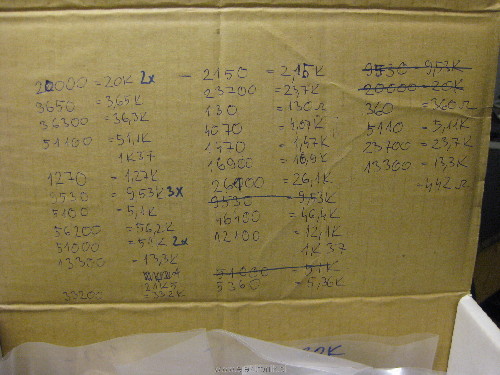 20000 = 20K 2x
3650 = 3,65K
36300 = 36,3K
51100 = 51,1K
1K37
1270 = 1,27K
9530 = 9,53K 3x
5100 = 5,1K
56200 = 56,2K
51000 = 51K 2x
13300 = 13,3K
21K5
33200 = 33,2K
- 2150 = 2,15K
23700 = 23,7K
130 = 130Ω
4070 = 4,07K
1470 = 1,47K
16900 = 16,9K
26100 = 26,1K
9530 = 9,53K
46400 = 46,4K
12100 = 12,1K
1K37
51000 = 51K
5360 = 5,36K
9530 = 9,53K
20000 = 20K
360 = 360Ω
5110 = 5,11K
23700 = 23,7K
13300 = 13,3K
=442Ω